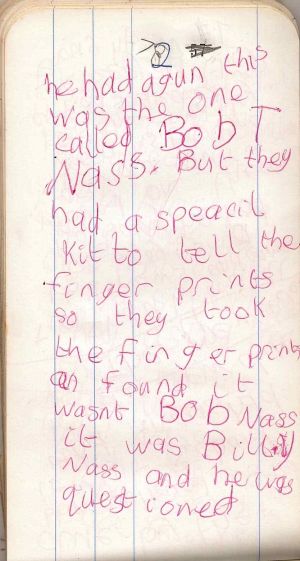 2
he had a gun this
was the one
called Bob T
Nass. But they
had a speacil
kit to tell the
finger prints
so they took
the finger prints
an found it
wasnt Bob Nass
it was Billy
Nass and he was
questioned